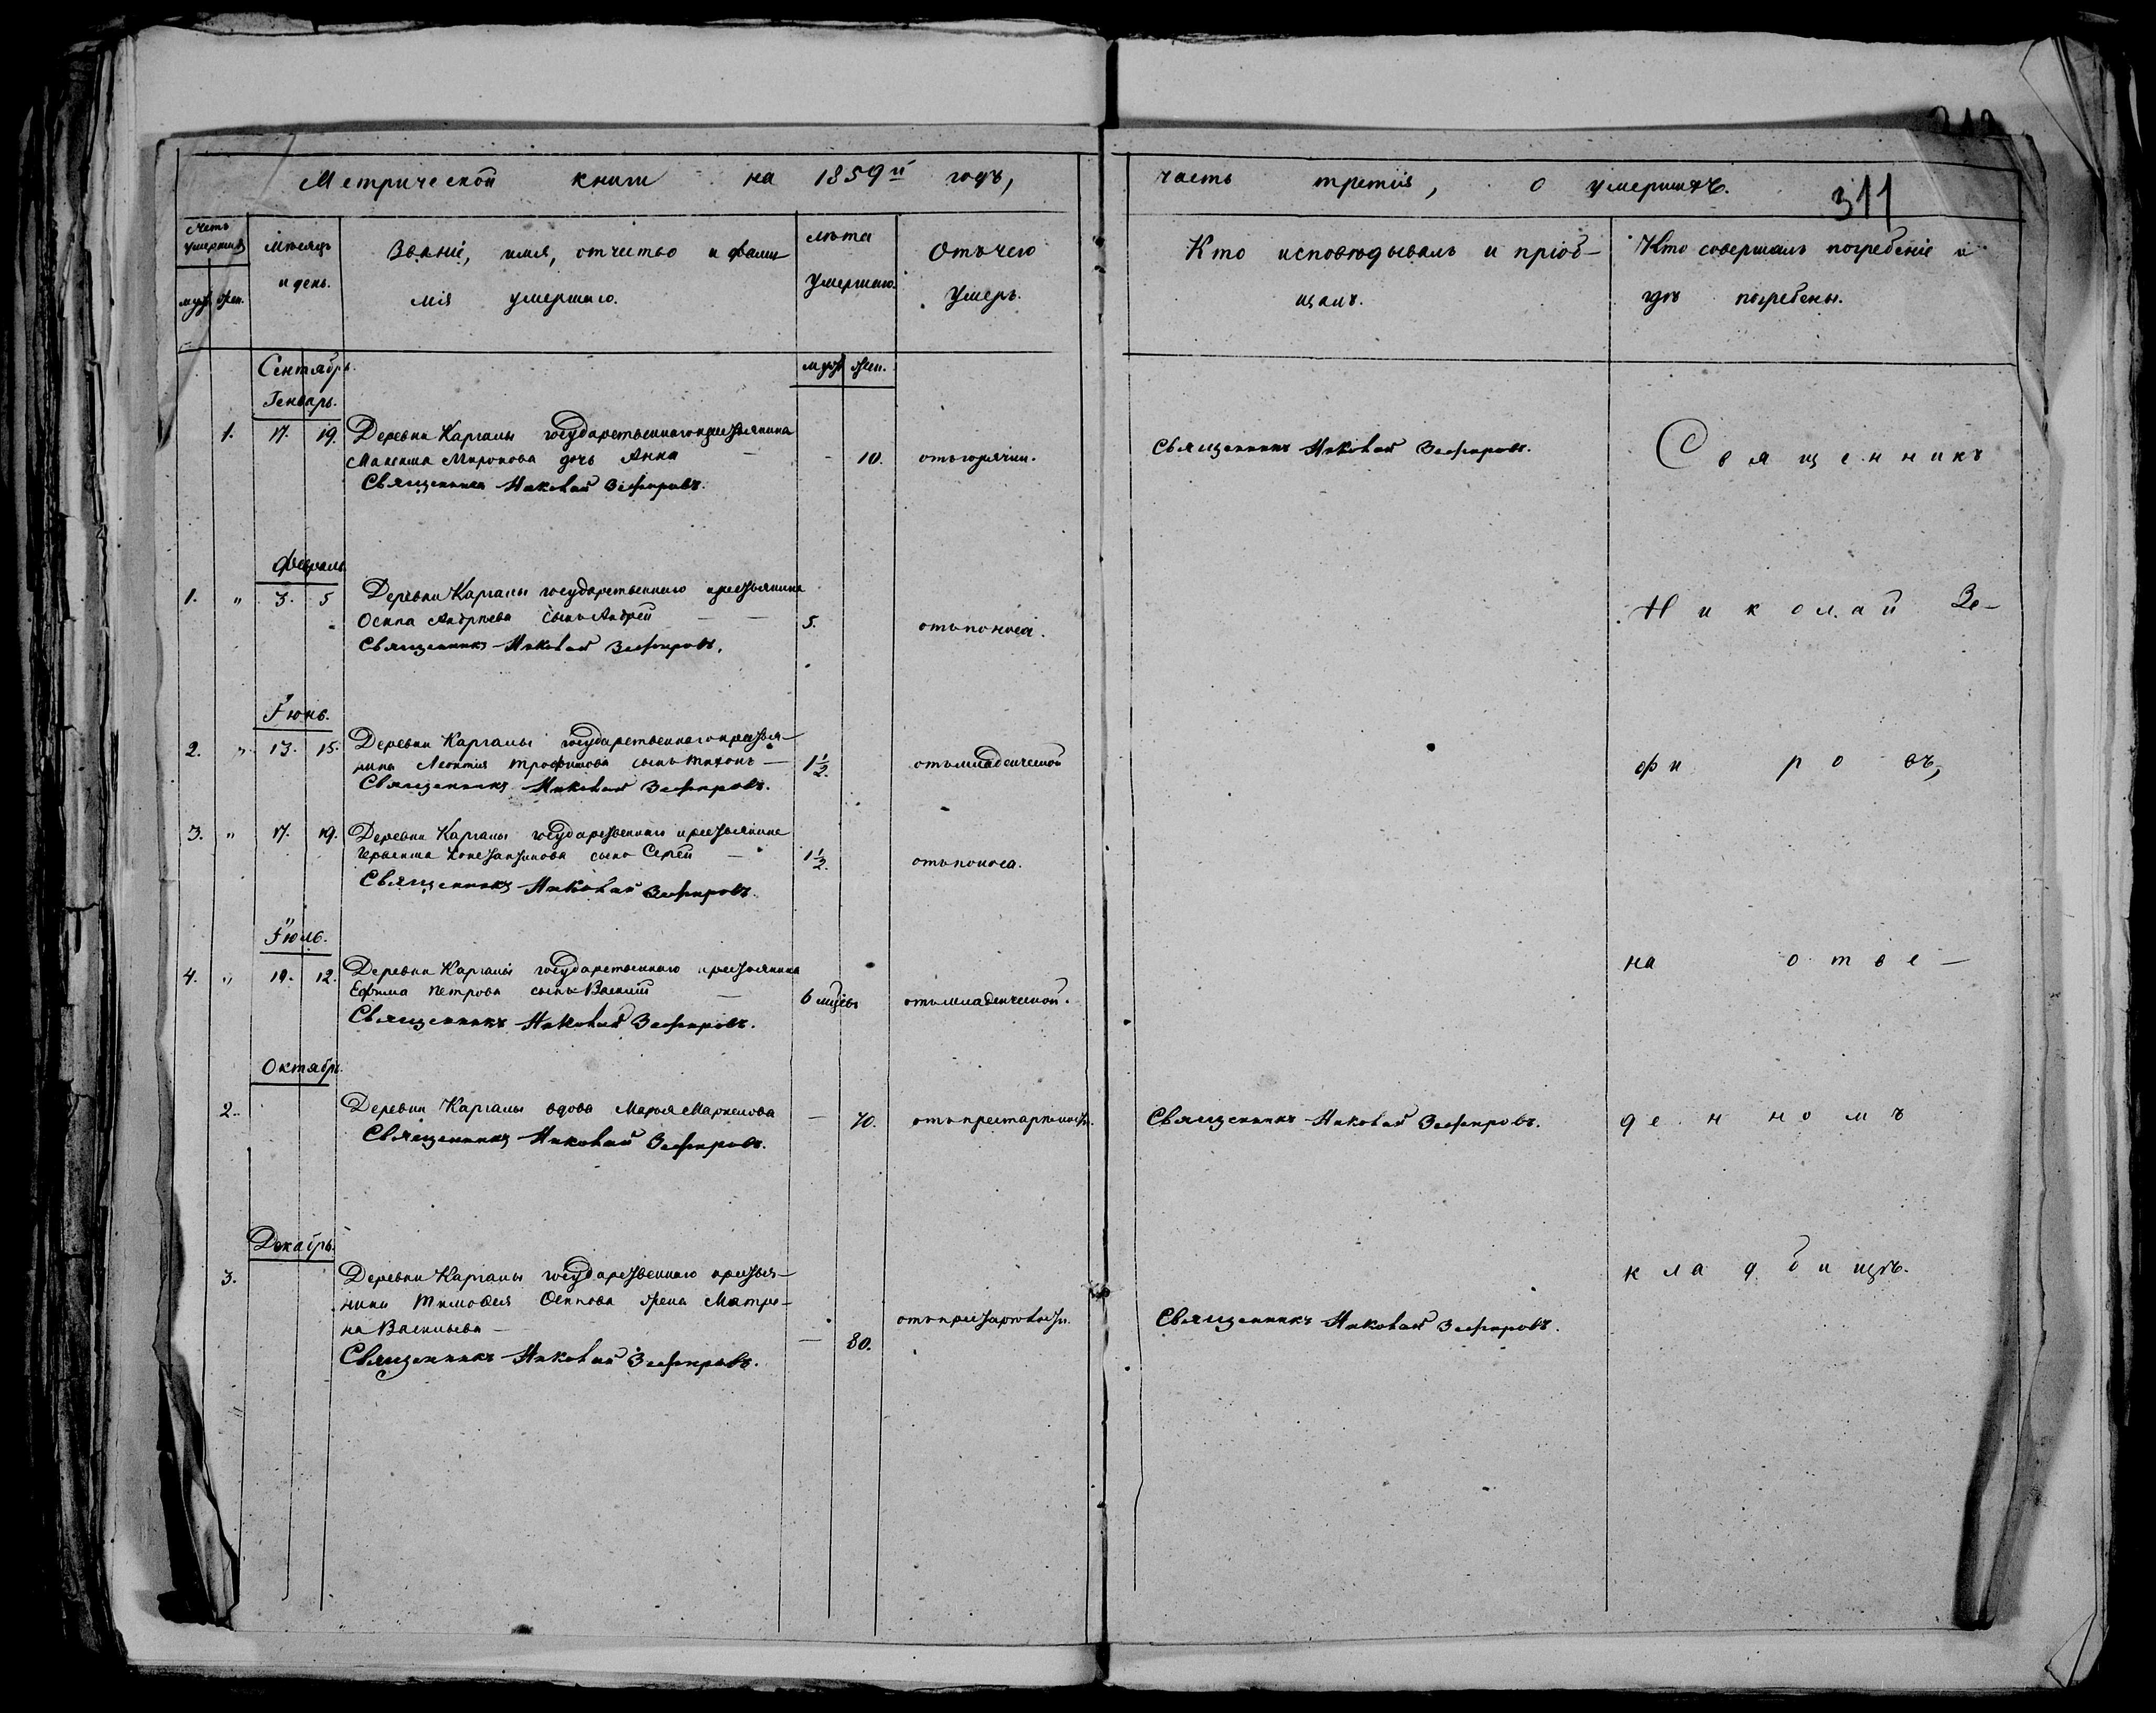 Метрической книги на 1859й годъ,
часть третія, о умершихъ.
311
Счетъ умершихъ
муж. жен.
Мѣсяцъ и день.
Званіе, имя, отчество и фами-
лія умершаго.
Лѣта
умершаго.
Отъ чего
умеръ.
Кто исповѣдывалъ и пріоб-
щалъ.
Кто совершалъ погребеніе и
гдѣ погребены.
Сентябрь.
муж. жен.
Генварь.
1. 17. 19. Деревни Карганы государственнаго крестьянина
Максима Миронова дочь Анна — - 10. отъ горячки.
Священникъ Николай Зефировъ.
Священникъ Николай Зефировъ.
Священникъ
Февраль
1. " 3. 5 Деревни Карганы государственнаго крестьянина
Осипа Андреева сынъ Андрей — — 5. отъ поноса.
Священникъ Николай Зефировъ.
Николай Зе-
Іюнь.
2. " 13. 15. Деревни Карганы государственнаго крестья-
нина Леонтія Трофимова сынъ Тихонъ — 1 1/2. отъ младенческой
Священникъ Николай Зефировъ.
фировъ,
3. " 17. 19. Деревни Карганы государственнаго крестьянина
сынъ Сергей — 1 1/2. отъ поноса.
Священникъ Николай Зефировъ.
Іюль.
4. " 10. 12. Деревни Карганы государственнаго крестьянина
Ефима Петрова сынъ Василій — 6 мцевъ отъ младенческой.
Священникъ Николай Зефировъ.
на отве-
Октябрь.
2. Деревни Карганы вдова Марья Маркелова — 70. отъ престарелости.
Священникъ Николай Зефировъ.
Священникъ Николай Зефировъ.
денномъ
Декабрь.
3. Деревни Карганы государственнаго крестья-
нина Тимофея Осипова жена Матре-
на Васильева — — 80. отъ престарелости.
Священникъ Николай Зефировъ.
Священникъ Николай Зефировъ.
кладбищѣ.